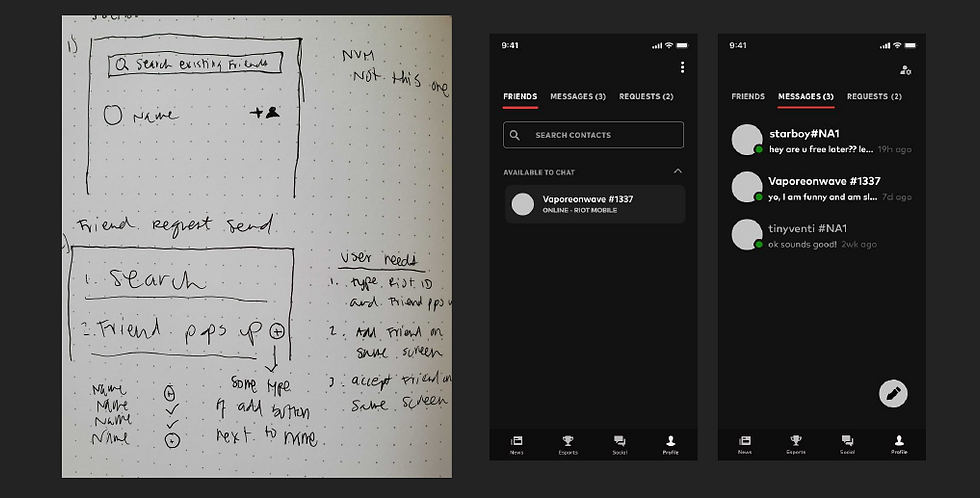 1)
Search existing Friends
Name
NVM
Not this one
Friend request send
1. Search
2. Friend pops up
Name
Name
Name
Name
Some type
of add button
next to name
user needs
1. type Riot ID
and Friend pops
2. Add Friend on
same screen
3. accept Friend on
same screen
9:41
FRIENDS MESSAGES (3) REQUESTS (2)
SEARCH CONTACTS
AVAILABLE TO CHAT
Vaporeonwave #1337
ONLINE - RIOT MOBILE
News Esports Social Profile
9:41
FRIENDS MESSAGES (3) REQUESTS (2)
starboy#NA1
hey are u free later?? le... 19h ago
Vaporeonwave #1337
yo, I am funny and am sl... 7d ago
tinyventi #NA1
ok sounds good! 2wk ago
News Esports Social Profile